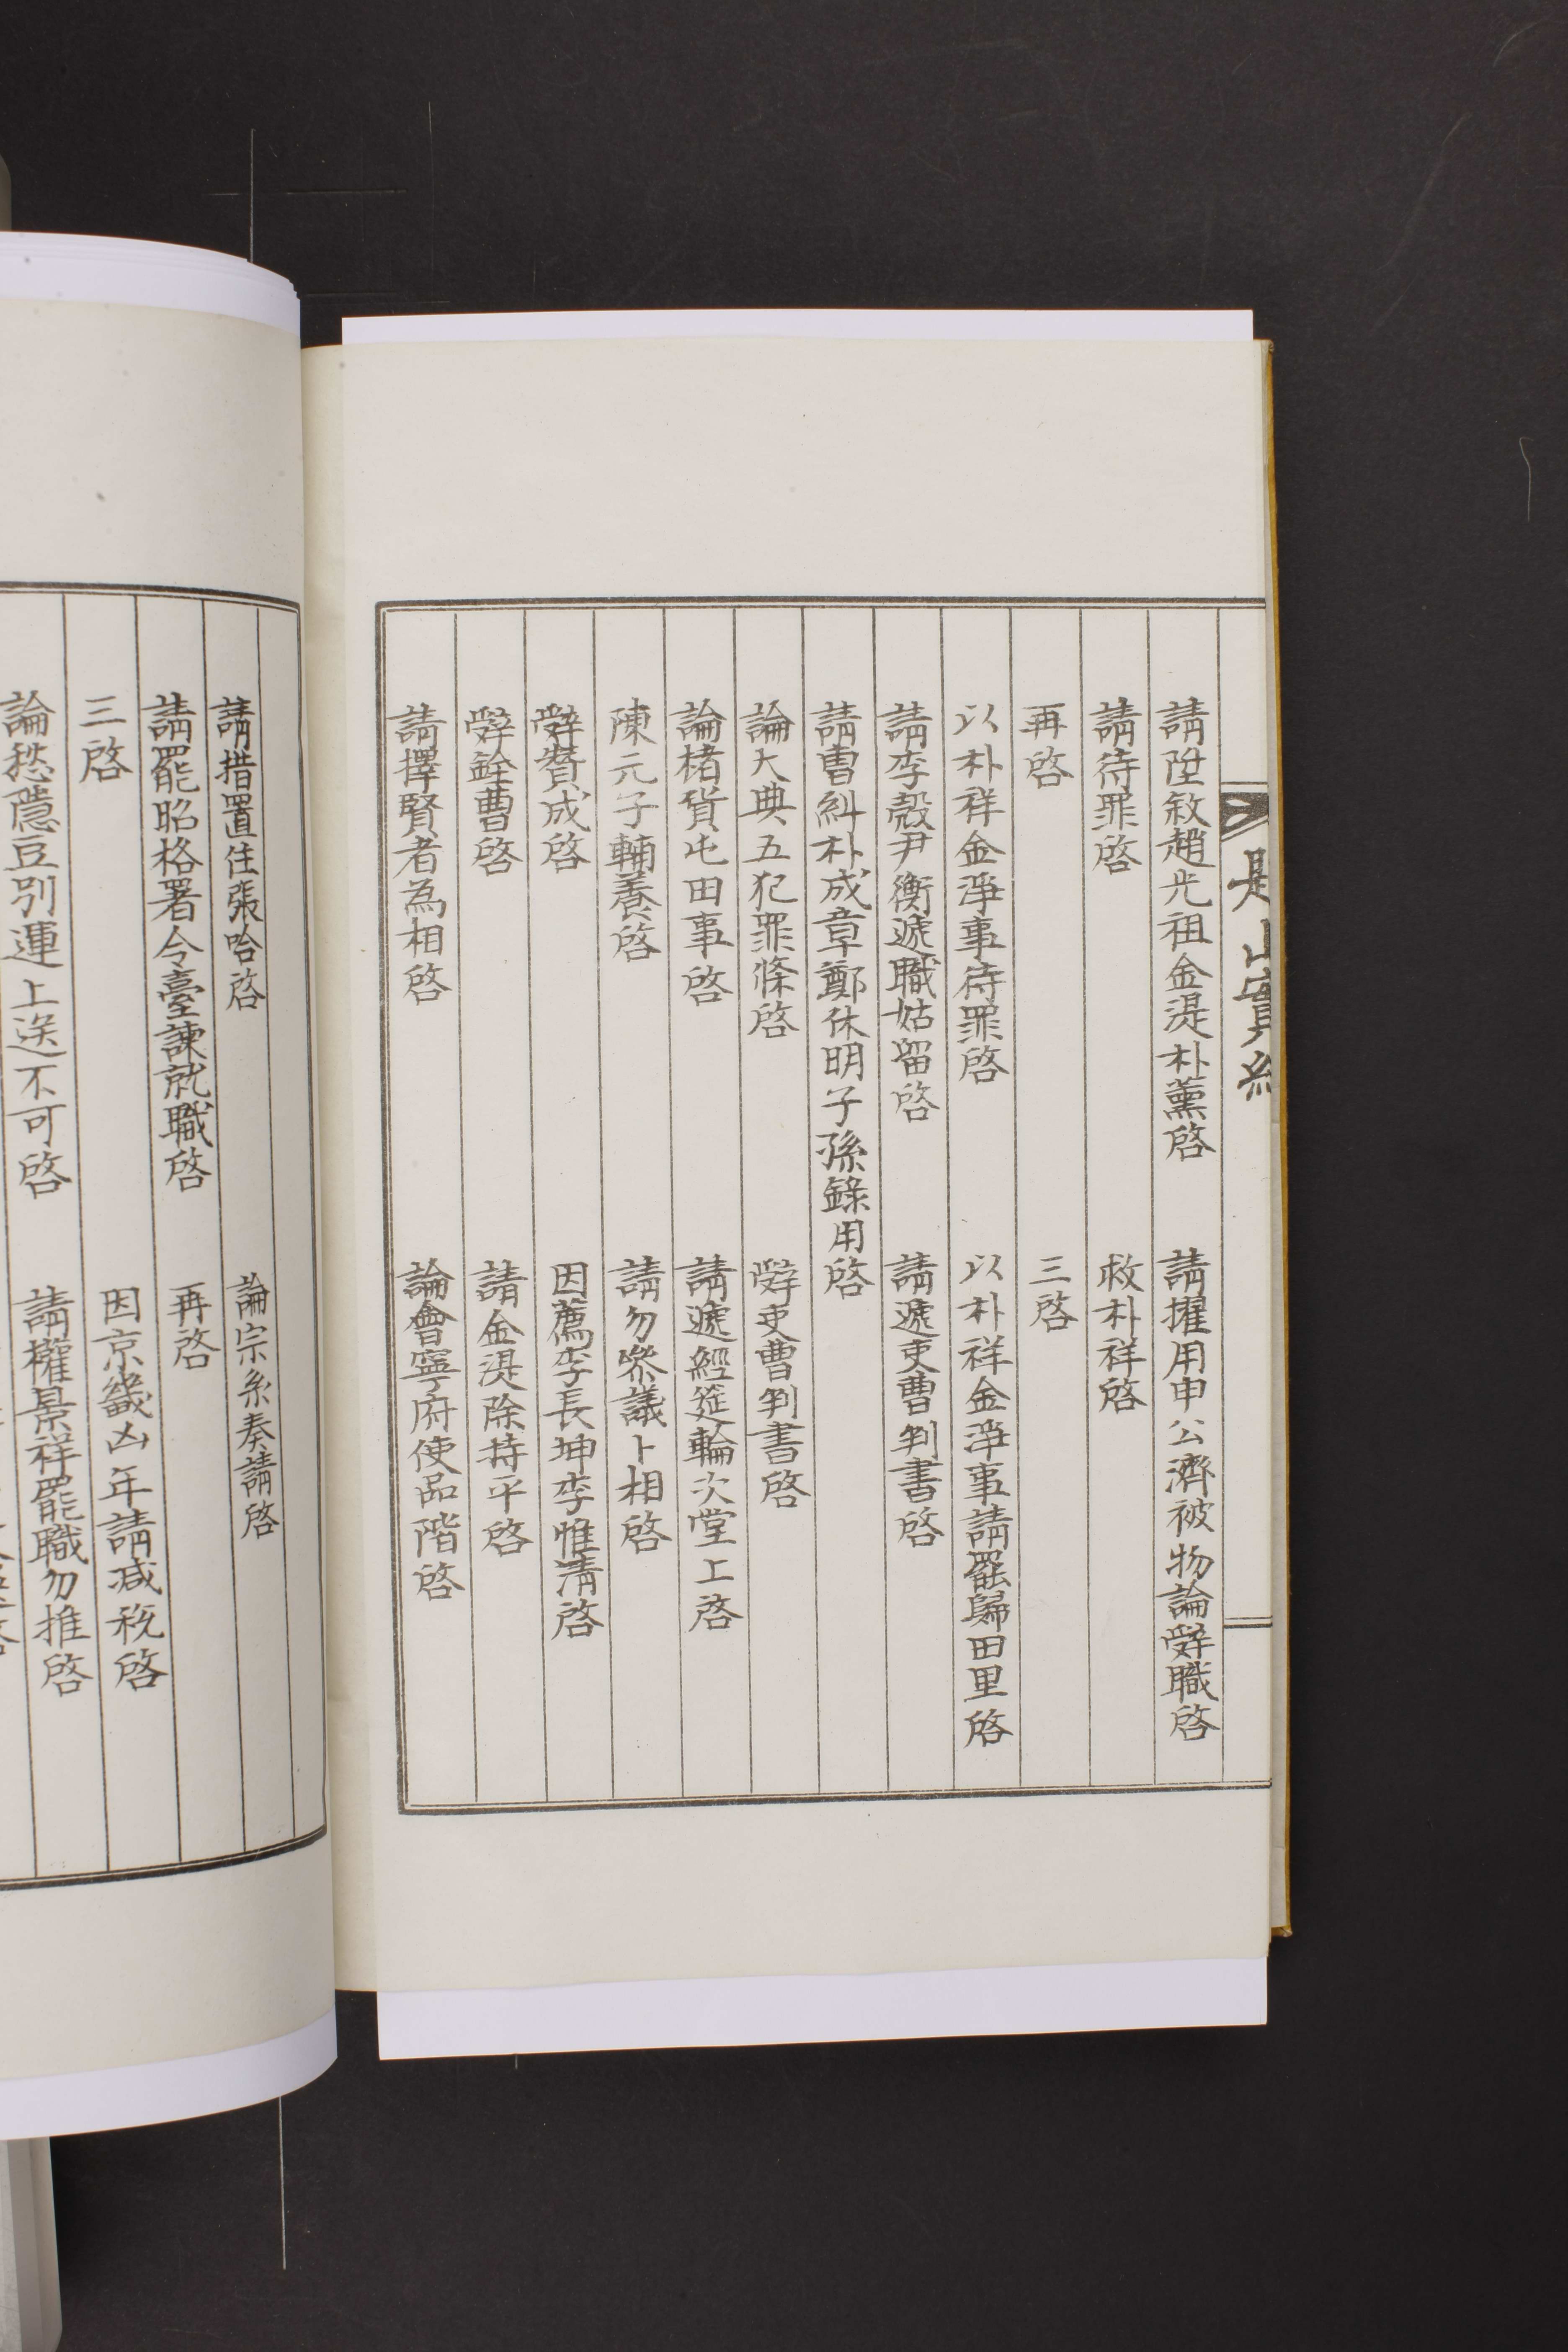 是
請陞敘趙光祖金湜朴薰啓　請擢用申公濟被物論辭職啓
請待罪啓　救朴祥啓
再啓　三啓
以朴祥金淨事待罪啓　以朴祥金淨事請罷歸田里啓
請李殼尹衡遞職姑留啓　請遞吏曹判書啓
請曺糾朴成章鄭休明子孫錄用啓
論大典五犯罪條啓　辭吏曹判書啓
論楮貨屯田事啓　請遞經筵輪次堂上啓
陳元子輔養啓　請勿叅議卜相啓
辭贊成啓　因薦李長坤李惟淸啓
辭銓曹啓　請金湜除持平啓
請擇賢者為相啓　論會寧府使品階啓
請措置住張哈啓　論宗系奏請啓
請罷昭格署令臺諫就職啓　再啓
三啓　因京畿凶年請減稅啓
論愁隱豆別運上送不可啓　請權景祥罷職勿推啓